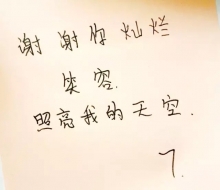 谢谢你灿烂
笑容.
照亮我的天空.
7.